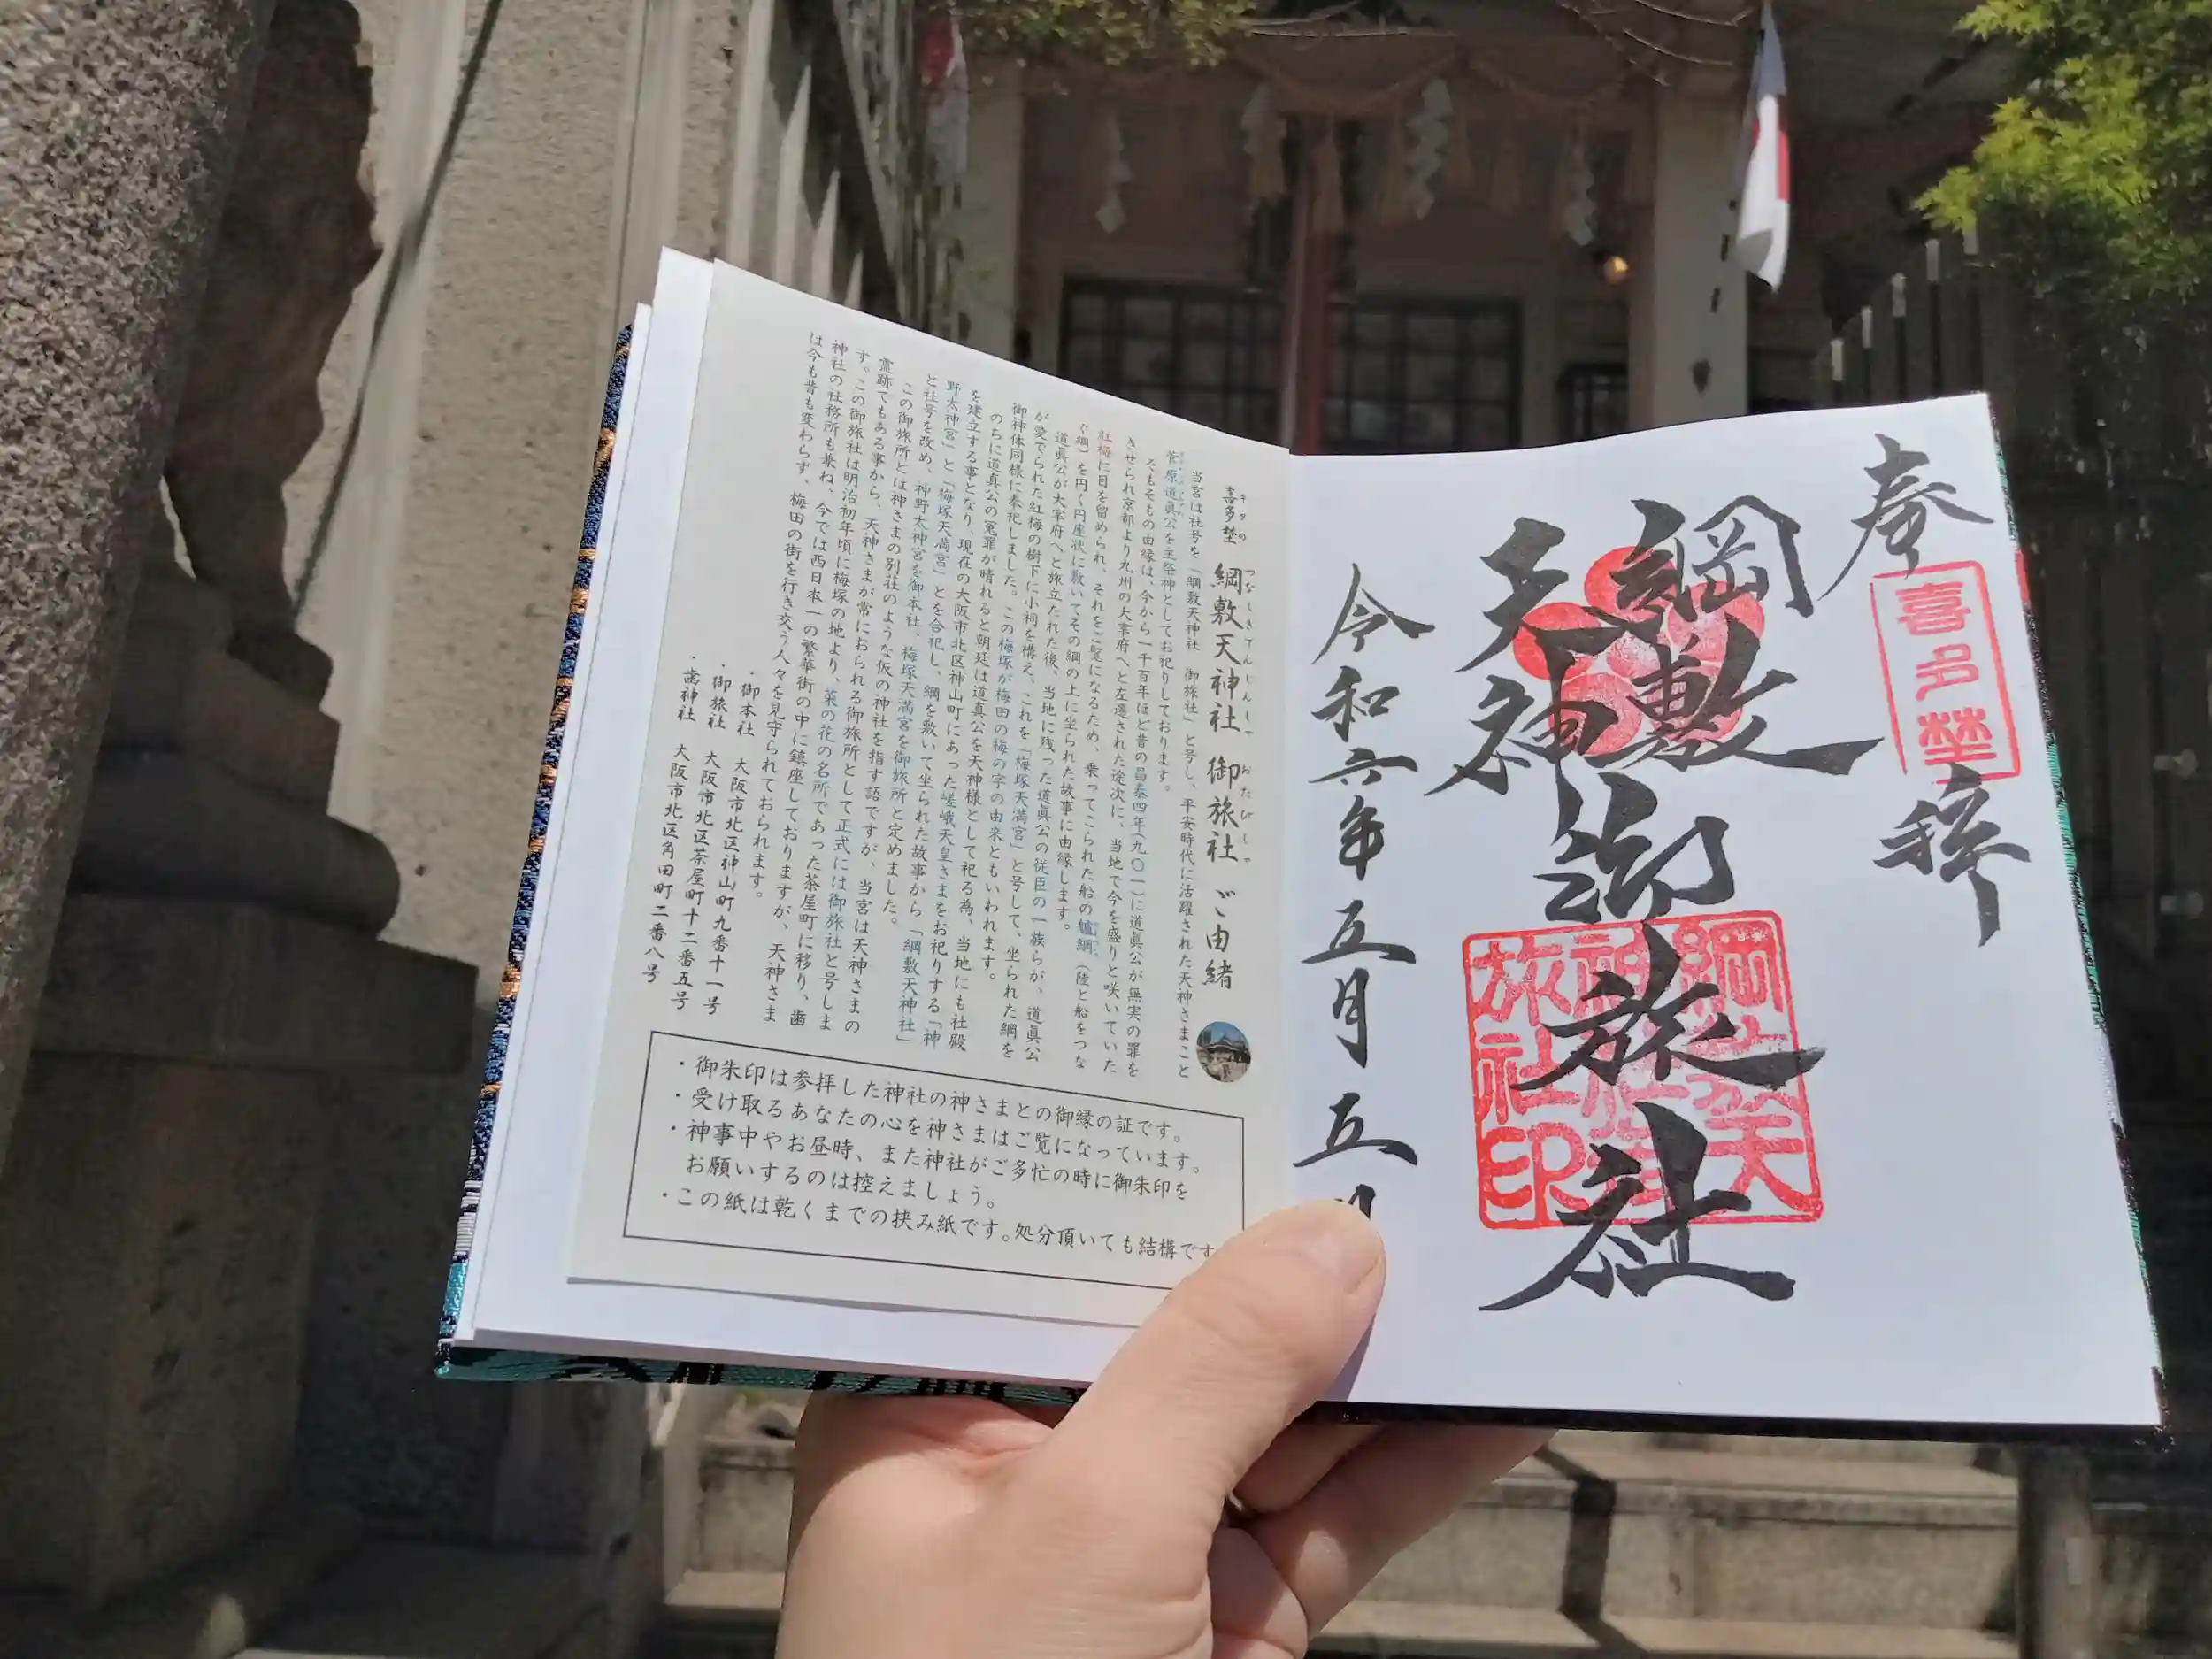 奉拝
喜多埜
綱敷
天神
御旅社
綱敷天
神社御
旅社印
令和六年五月五
喜多埜 綱敷天神社 御旅社 ご由緒
キタの つなしきてんじんしゃ おたびしゃ
当宮は社号を「綱敷天神社 御旅社」と号し、平安時代に活躍された天神さまこと
菅原道真公を主祭神としてお祀りしております。
そもそもの由縁は、今から一千百年ほど昔の昌泰四年(九〇一)に道真公が無実の罪を
きせられ京都より九州の大宰府へと左遷された途次に、当地で今を盛りと咲いていた
紅梅に目を留められ、それをご覧になるため、乗ってこられた船の艫綱(陸と船をつな
ぐ綱)を円く円座状に敷いてその綱の上に坐られた故事に由縁します。
道真公が大宰府へと旅立たれた後、当地に残った道真公の従臣の一族らが、道真公
が愛でられた紅梅の樹下に小祠を構え、これを「梅塚天満宮」と号して、坐られた綱を
御神体同様に奉祀しました。この梅塚が梅田の梅の字の由来ともいわれます。
のちに道真公の冤罪が晴れると朝廷は道真公を天神様として祀る為、当地にも社殿
を建立する事となり、現在の大阪市北区神山町にあった嵯峨天皇さまをお祀りする「神
野太神宮」と「梅塚天満宮」とを合祀し、綱を敷いて坐られた故事から「綱敷天神社」
と社号を改め、神野太神宮を御本社、梅塚天満宮を御旅所と定めました。
この御旅所とは神さまの別荘のような仮の神社を指す語ですが、当宮は天神さまの
霊跡でもある事から、天神さまが常におられる御旅所として正式には御旅社と号しま
す。この御旅社は明治初年頃に梅塚の地より、菜の花の名所であった茶屋町に移り、歯
神社の社務所も兼ね、今では西日本一の繁華街の中に鎮座しておりますが、天神さま
は今も昔も変わらず、梅田の街を行き交う人々を見守られておられます。
・御本社 大阪市北区神山町九番十一号
・御旅社 大阪市北区茶屋町十二番五号
・歯神社 大阪市北区角田町二番八号
・御朱印は参拝した神社の神さまとの御縁の証です。
・受け取るあなたの心を神さまはご覧になっています。
・神事中やお昼時、また神社がご多忙の時に御朱印を
お願いするのは控えましょう。
・この紙は乾くまでの挟み紙です。処分頂いても結構です